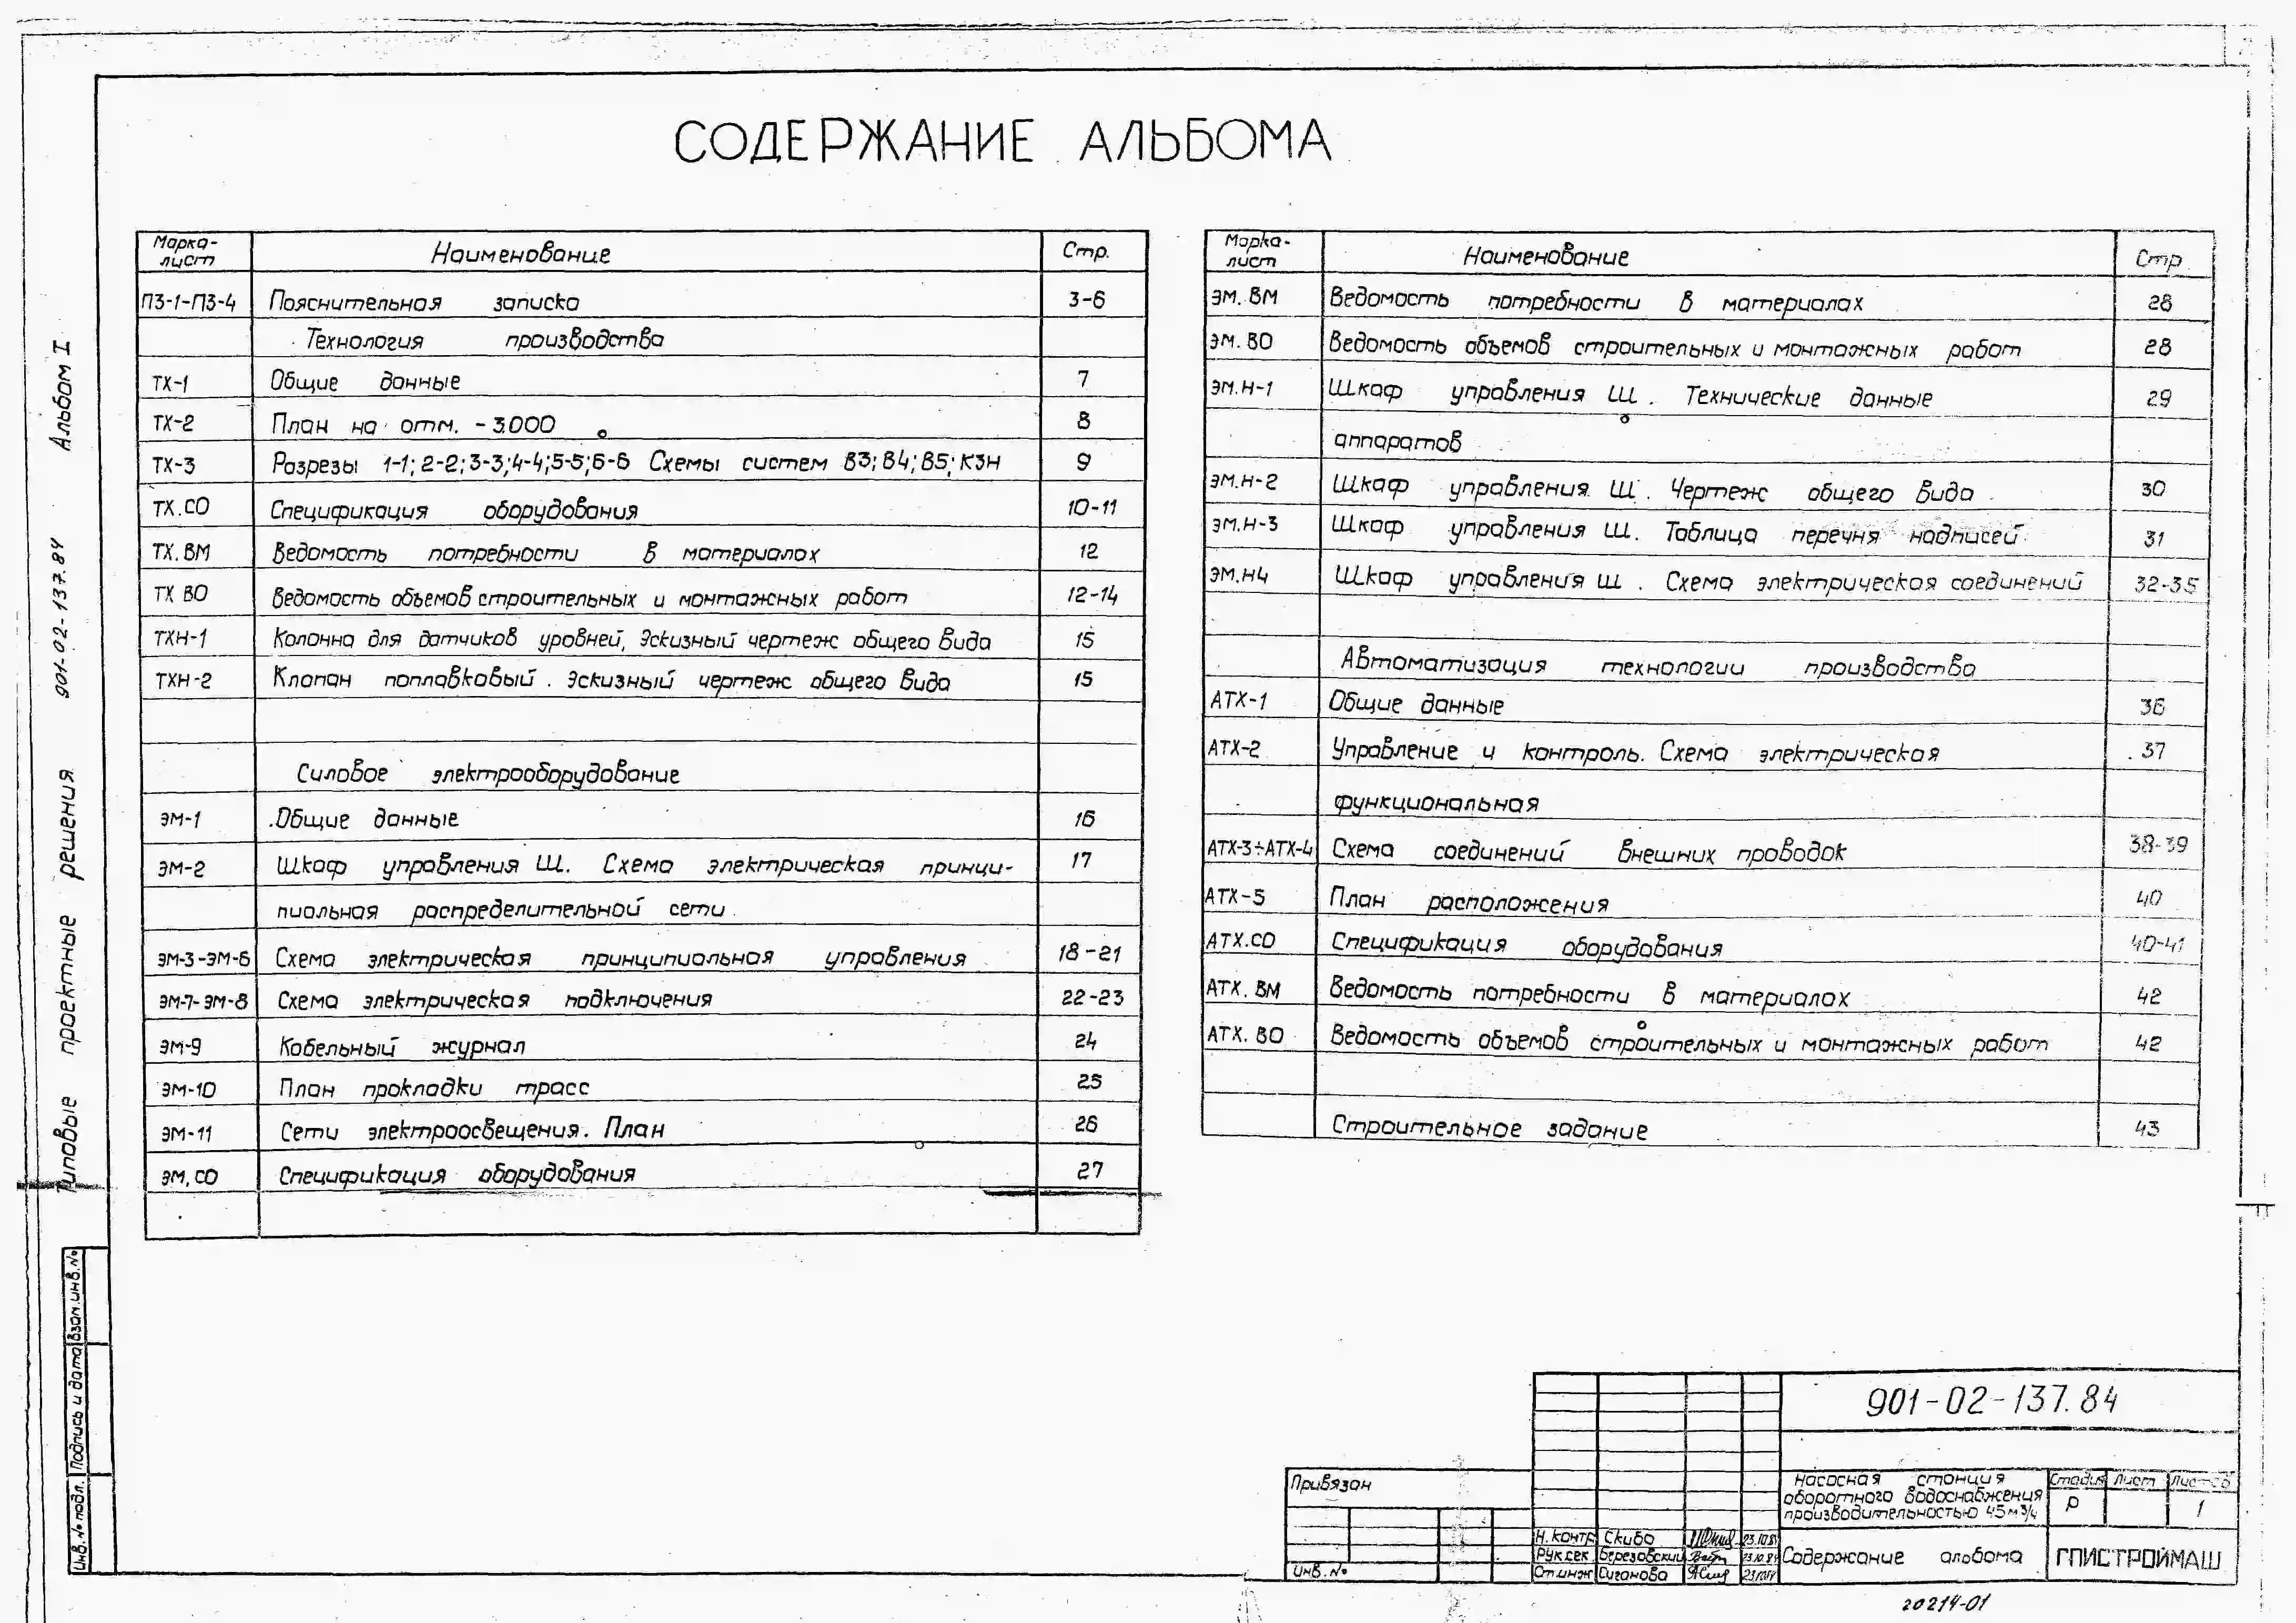 СОДЕРЖАНИЕ АЛЬБОМА
Марка-лист Наименование Стр.
ПЗ-1-ПЗ-4 Пояснительная записка 3-6
Технология производства
ТХ-1 Общие данные 7
ТХ-2 План на отм. -3.000 8
ТХ-3 Разрезы 1-1; 2-2; 3-3; 4-4; 5-5; 6-6 Схемы систем В3; В4; В5; К3Н 9
ТХ.СО Спецификация оборудования 10-11
ТХ.ВМ Ведомость потребности в материалах 12
ТХ ВО Ведомость объемов строительных и монтажных работ 12-14
ТХН-1 Колонна для датчиков уровней, Эскизный чертеж общего вида 15
ТХН-2 Клапан поплавковый. Эскизный чертеж общего вида 15
Силовое электрооборудование
ЭМ-1 Общие данные 16
ЭМ-2 Шкаф управления Ш. Схема электрическая принци- 17
пиальная распределительной сети
ЭМ-3-ЭМ-6 Схема электрическая принципиальная управления 18-21
ЭМ-7-ЭМ-8 Схема электрическая подключения 22-23
ЭМ-9 Кабельный журнал 24
ЭМ-10 План прокладки трасс 25
ЭМ-11 Сети электроосвещения. План 26
ЭМ.СО Спецификация оборудования 27
Марка-лист Наименование Стр
ЭМ.ВМ Ведомость потребности в материалах 28
ЭМ.ВО Ведомость объемов строительных и монтажных работ 28
ЭМ.Н-1 Шкаф управления Ш. Технические данные 29
аппаратов
ЭМ.Н-2 Шкаф управления Ш. Чертеж общего вида 30
ЭМ.Н-3 Шкаф управления Ш. Таблица перечня надписей 31
ЭМ.Н4 Шкаф управления Ш. Схема электрическая соединений 32-35
Автоматизация технологии производства
АТХ-1 Общие данные 36
АТХ-2 Управление и контроль. Схема электрическая 37
функциональная
АТХ-3÷АТХ-4 Схема соединений внешних проводок 38-39
АТХ-5 План расположения 40
АТХ.СО Спецификация оборудования 40-41
АТХ.ВМ Ведомость потребности в материалах 42
АТХ.ВО Ведомость объемов строительных и монтажных работ 42
Строительное задание 43
Типовые проектные решения 901-02-137.84 Альбом I
Инв.№ подл. Подпись и дата Взам.инв.№
Привязан
Инв.№
901-02-137.84
Насосная станция
оборотного водоснабжения
производительностью 45м3/ч
Стадия Лист Листов
Р 1
Н.контр Скиба 23.10.84
Рук.сек. Березовский 23.10.84
Ст.инж Циганова
Содержание альбома
ГПИСТРОЙМАШ
20214-01